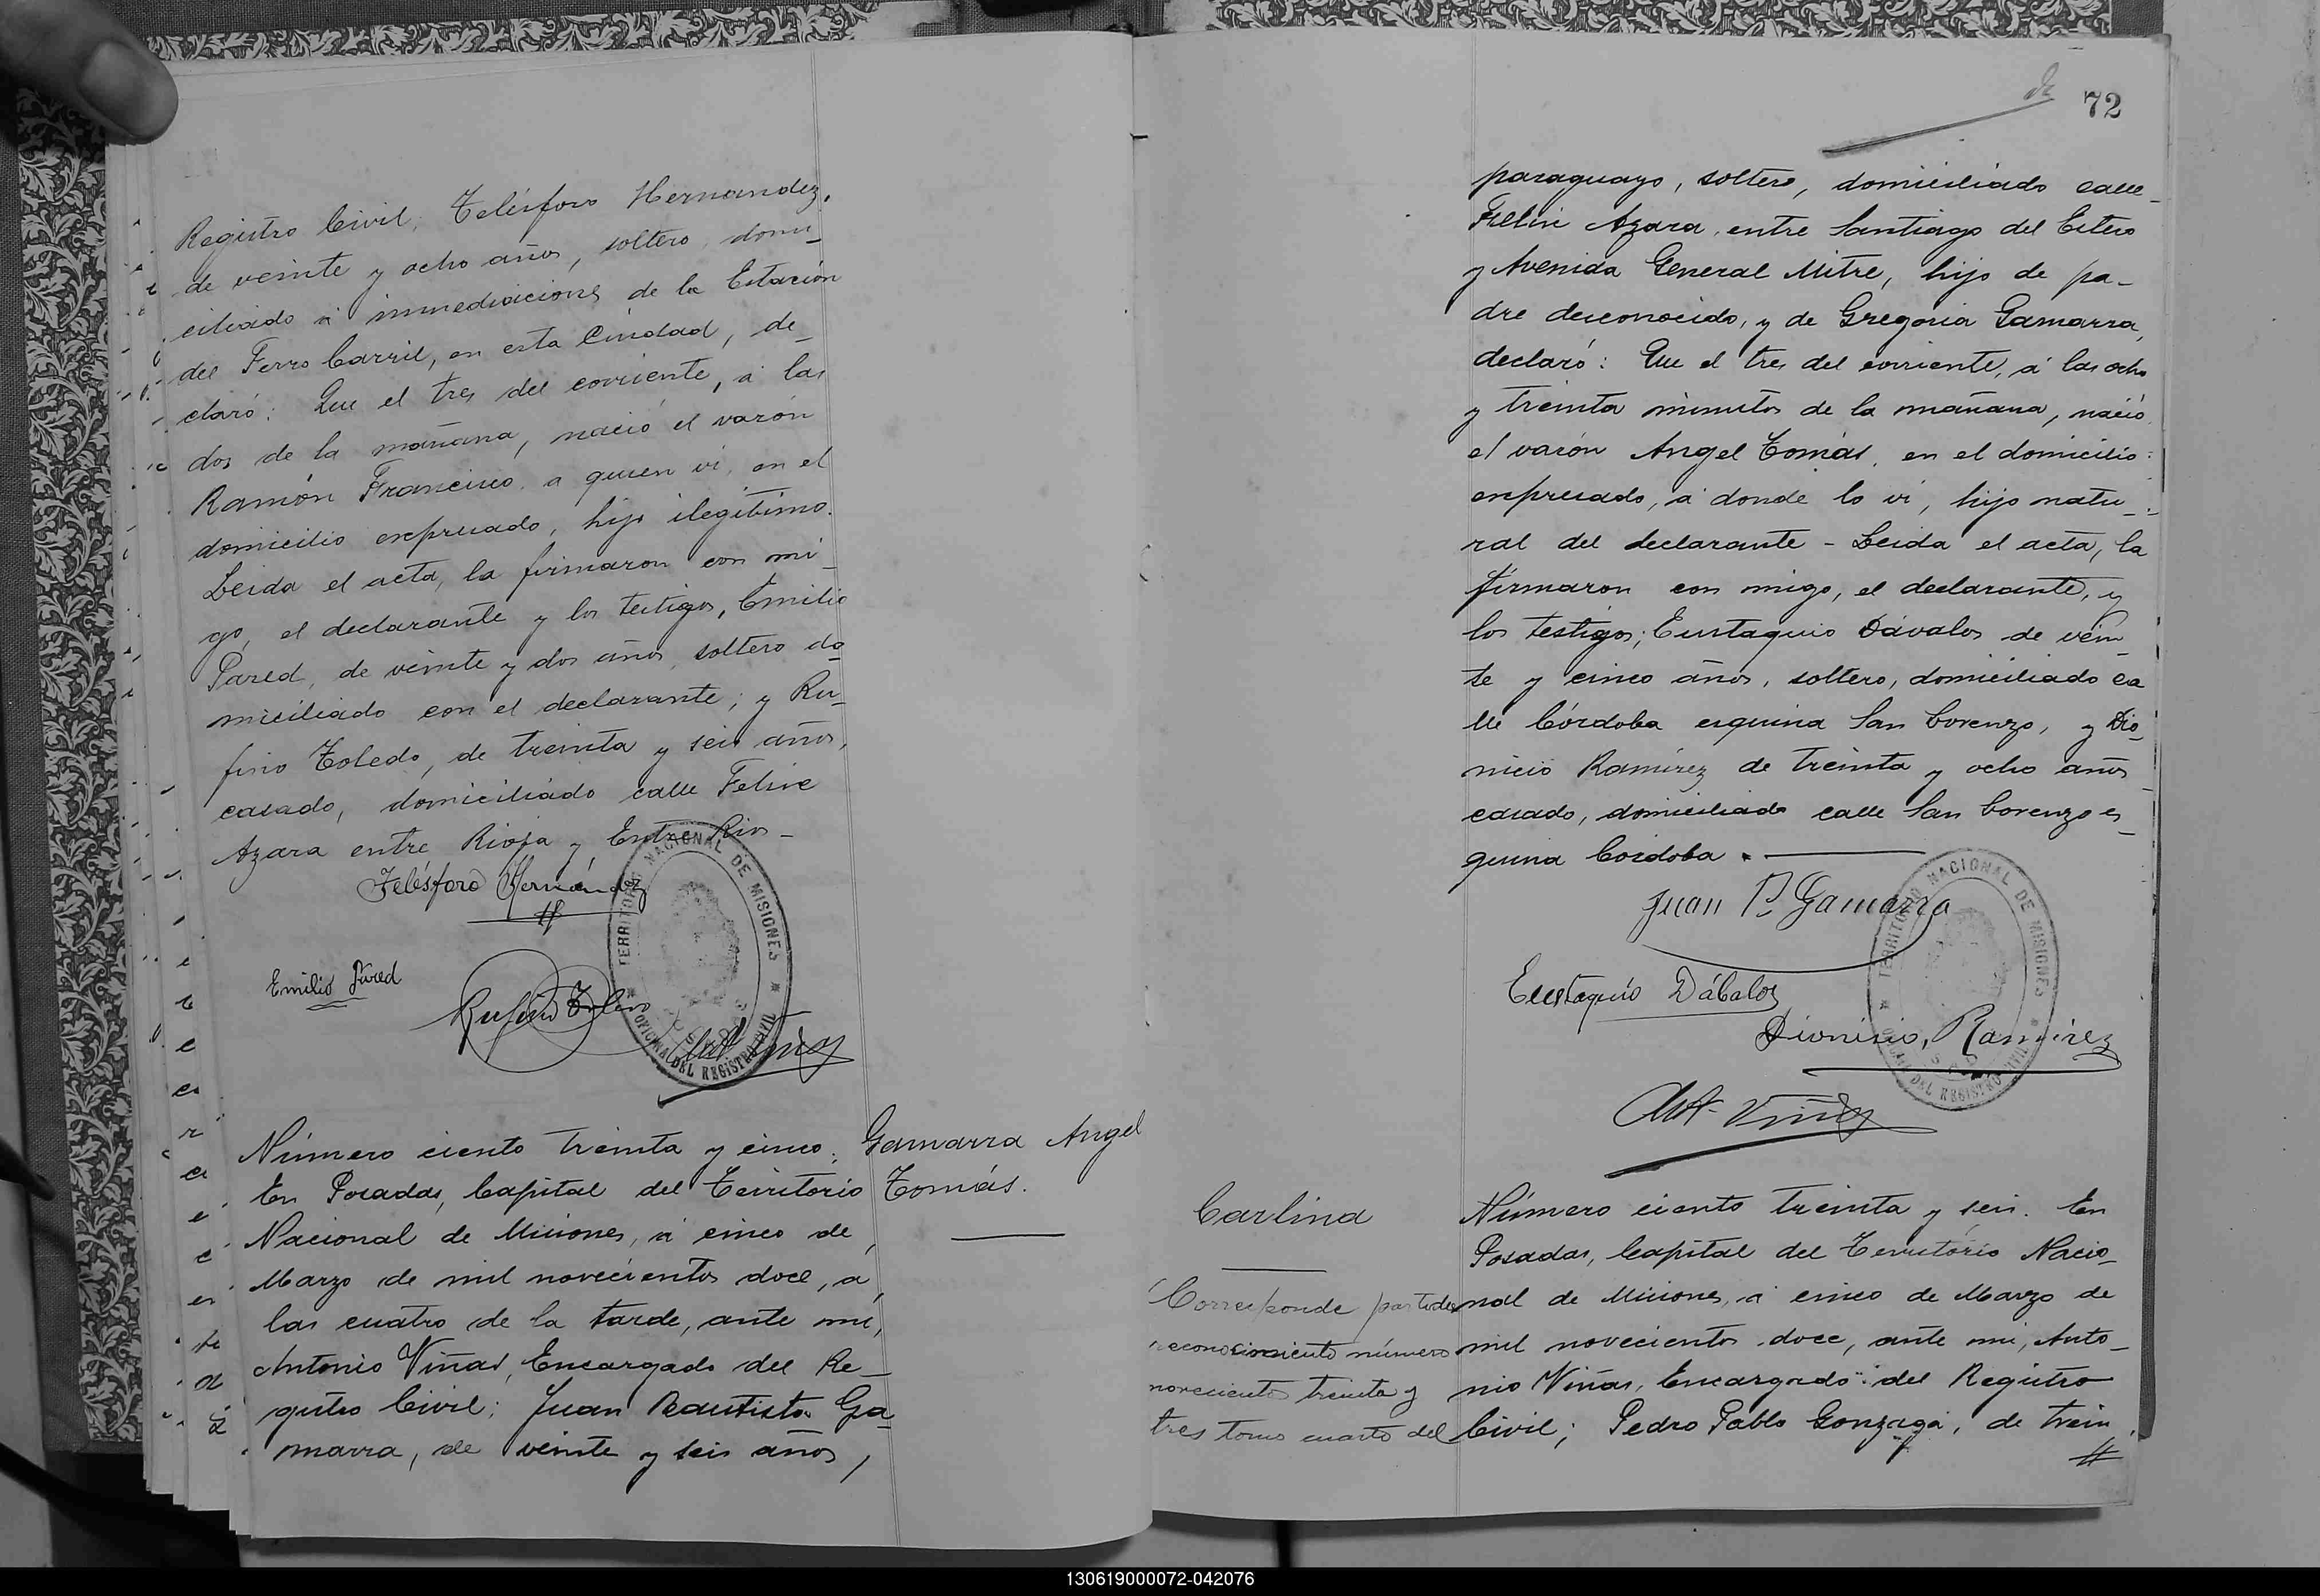 Registro Civil; Telésforo Hernandez,
de veinte y ocho años, soltero, domi_
ciliado á inmediaciones de la Estación
del Ferro Carril, en esta Ciudad, de_
claró: Que el tres del corriente, á las
dos de la mañana, nació el varón
Ramón Francisco, a quien ví, en el
domicilio expresado, hijo ilegítimo.
Leida el acta, la firmaron con mi_
go, el declarante y los testigos, Emilio
Pared, de veinte y dos años, soltero do_
miciliado con el declarante; y Ru_
fino Toledo, de treinta y seis años,
casado, domiciliado calle Felix
Azara entre Rioja y Entre Rios_
Telésforo Hernández
Emilio Pared
Rufino Toledo
Ant. Viñas
TERRITORIO NACIONAL DE MISIONES
OFICINA DEL REGISTRO CIVIL
Número ciento treinta y cinco:
Gamarra Angel
Tomás.
En Posadas, Capital del Territorio
Nacional de Misiones, á cinco de
Marzo de mil novecientos doce, a
las cuatro de la tarde, ante mí,
Antonio Viñas, Encargado del Re_
gistro Civil; Juan Bautista Ga_
marra, de veinte y seis años,
72
paraguayo, soltero, domiciliado calle_
Felix Azara, entre Santiago del Estero
y Avenida General Mitre, hijo de pa_
dre desconocido, y de Gregoria Gamarra,
declaró: Que el tres del corriente, á las ocho
y treinta minutos de la mañana, nació
el varón Angel Tomás, en el domicilio
expresado, á donde lo ví, hijo natu_
ral del declarante - Leida el acta, la
firmaron con migo, el declarante, y
los testigos; Eustaquio Dávalos de vein_
te y cinco años, soltero, domiciliado ca
lle Córdoba esquina San Lorenzo, y Dio_
nicio Ramírez de treinta y ocho años
casado, domiciliado calle San Lorenzo es_
quina Córdoba.
Juan B. Gamarra
Eustaquio Dábalos
Dionisio, Ramirez
Ant. Viñas
TERRITORIO NACIONAL DE MISIONES
OFICINA DEL REGISTRO CIVIL
Carlina
Corresponde partida
reconocimiento número
novecientos treinta y
tres tomo cuarto del
Número ciento treinta y seis. En
Posadas, Capital del Territorio Nacio_
nal de Misiones, á cinco de Marzo de
mil novecientos doce, ante mí, Anto_
nio Viñas, Encargado del Registro
Civil; Pedro Pablo Gonzaga, de trein_
130619000072-042076